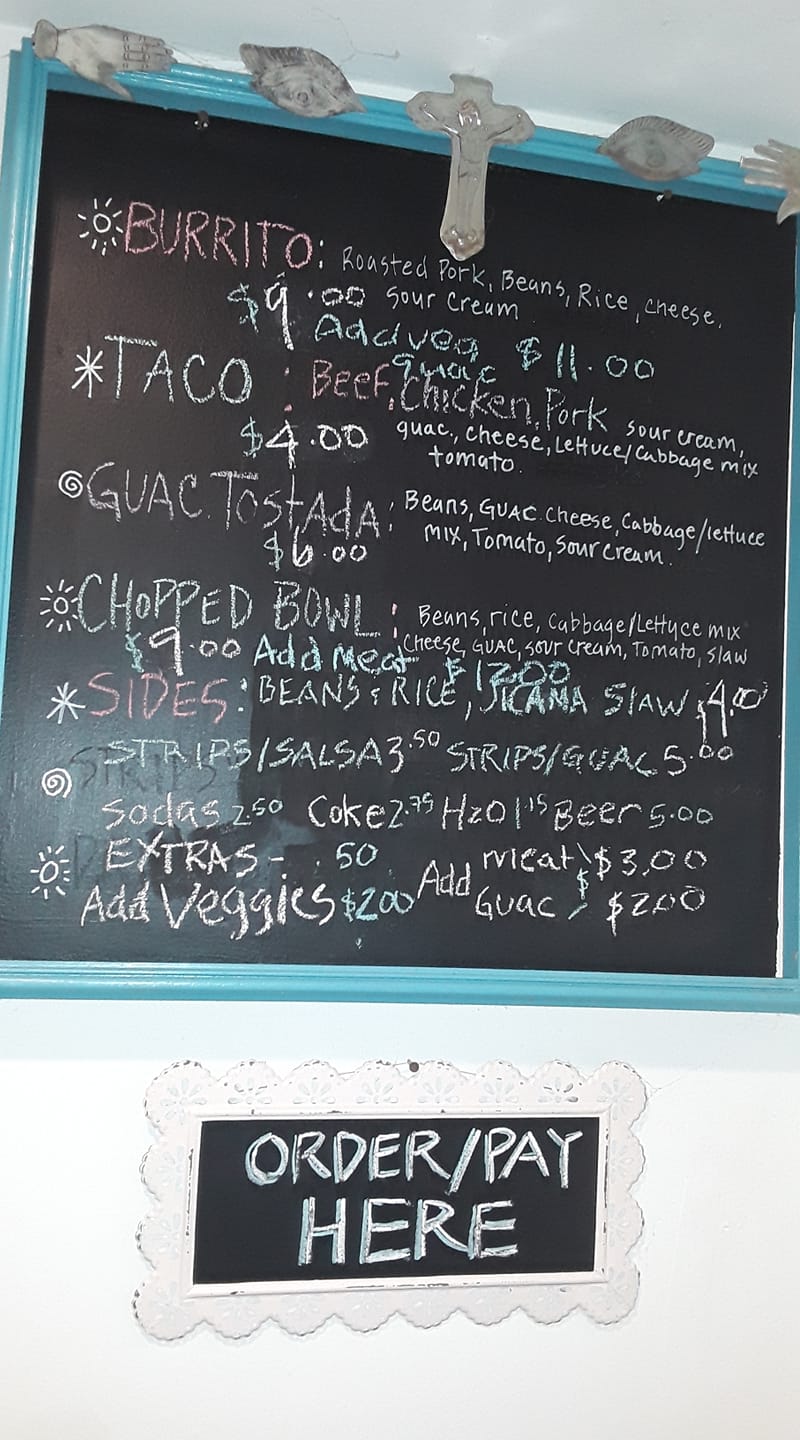 BURRITO: Roasted Pork, Beans, Rice, cheese,
$9.00 sour cream
Add veg $11.00
guac
TACO: Beef, Chicken, Pork sour cream,
$4.00 guac, cheese, Lettuce/Cabbage mix
tomato.
GUAC. TostAdA: Beans, GUAC. Cheese, Cabbage/lettuce
$6.00 mix, Tomato, Sour Cream.
CHOPPED BOWL: Beans, rice, Cabbage/Lettuce mix
$9.00 Add Meat $12.00 Cheese, GUAC, sour cream, Tomato, slaw
SIDES: BEANS & RICE, JICAMA SlAW $4.00
STRIPS/SALSA 3.50 STRIPS/GUAC 5.00
Sodas 2.50 Coke 2.75 H2O 1.15 Beer 5.00
EXTRAS - .50 Add Meat $3.00
Add Veggies $2.00 Guac $2.00
ORDER/PAY
HERE